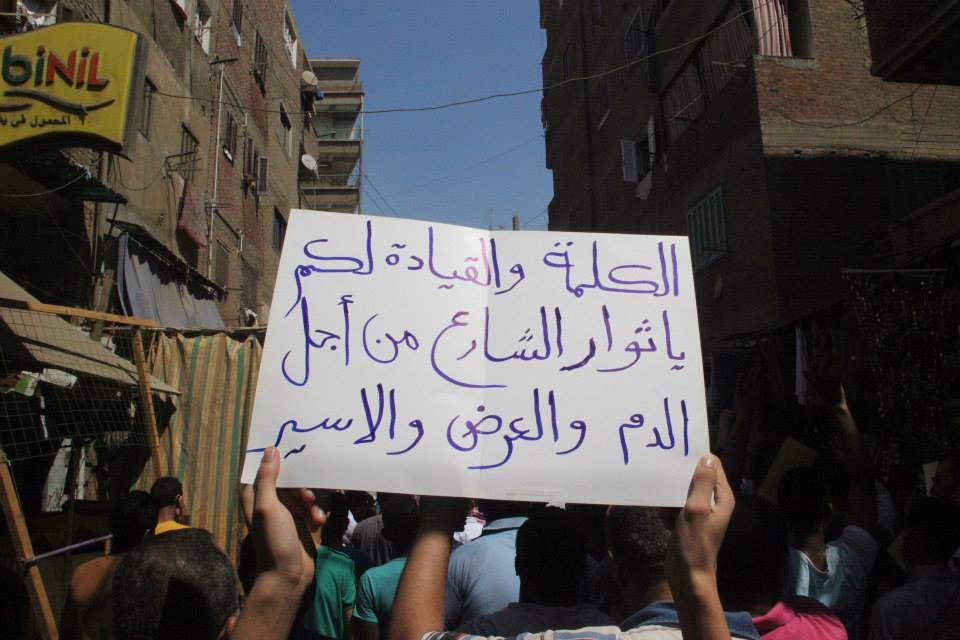 biNiL
المعمول في
الكلمة والقيادة لكم
ياثوار الشارع من أجل
الدم والعرض والاسير